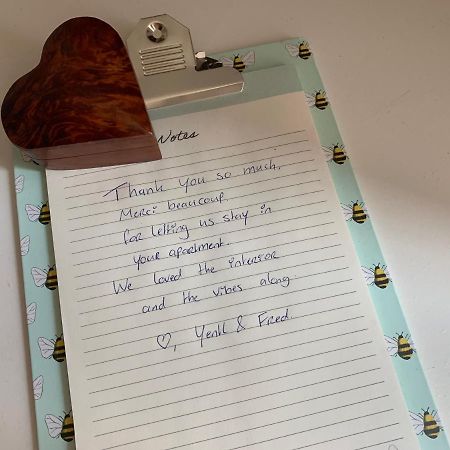 Notes
Thank you so much,
Merci beaucoup.
for letting us stay in
your apartment.
We loved the interior
and the vibes along.
♡, Yentl & Fred.